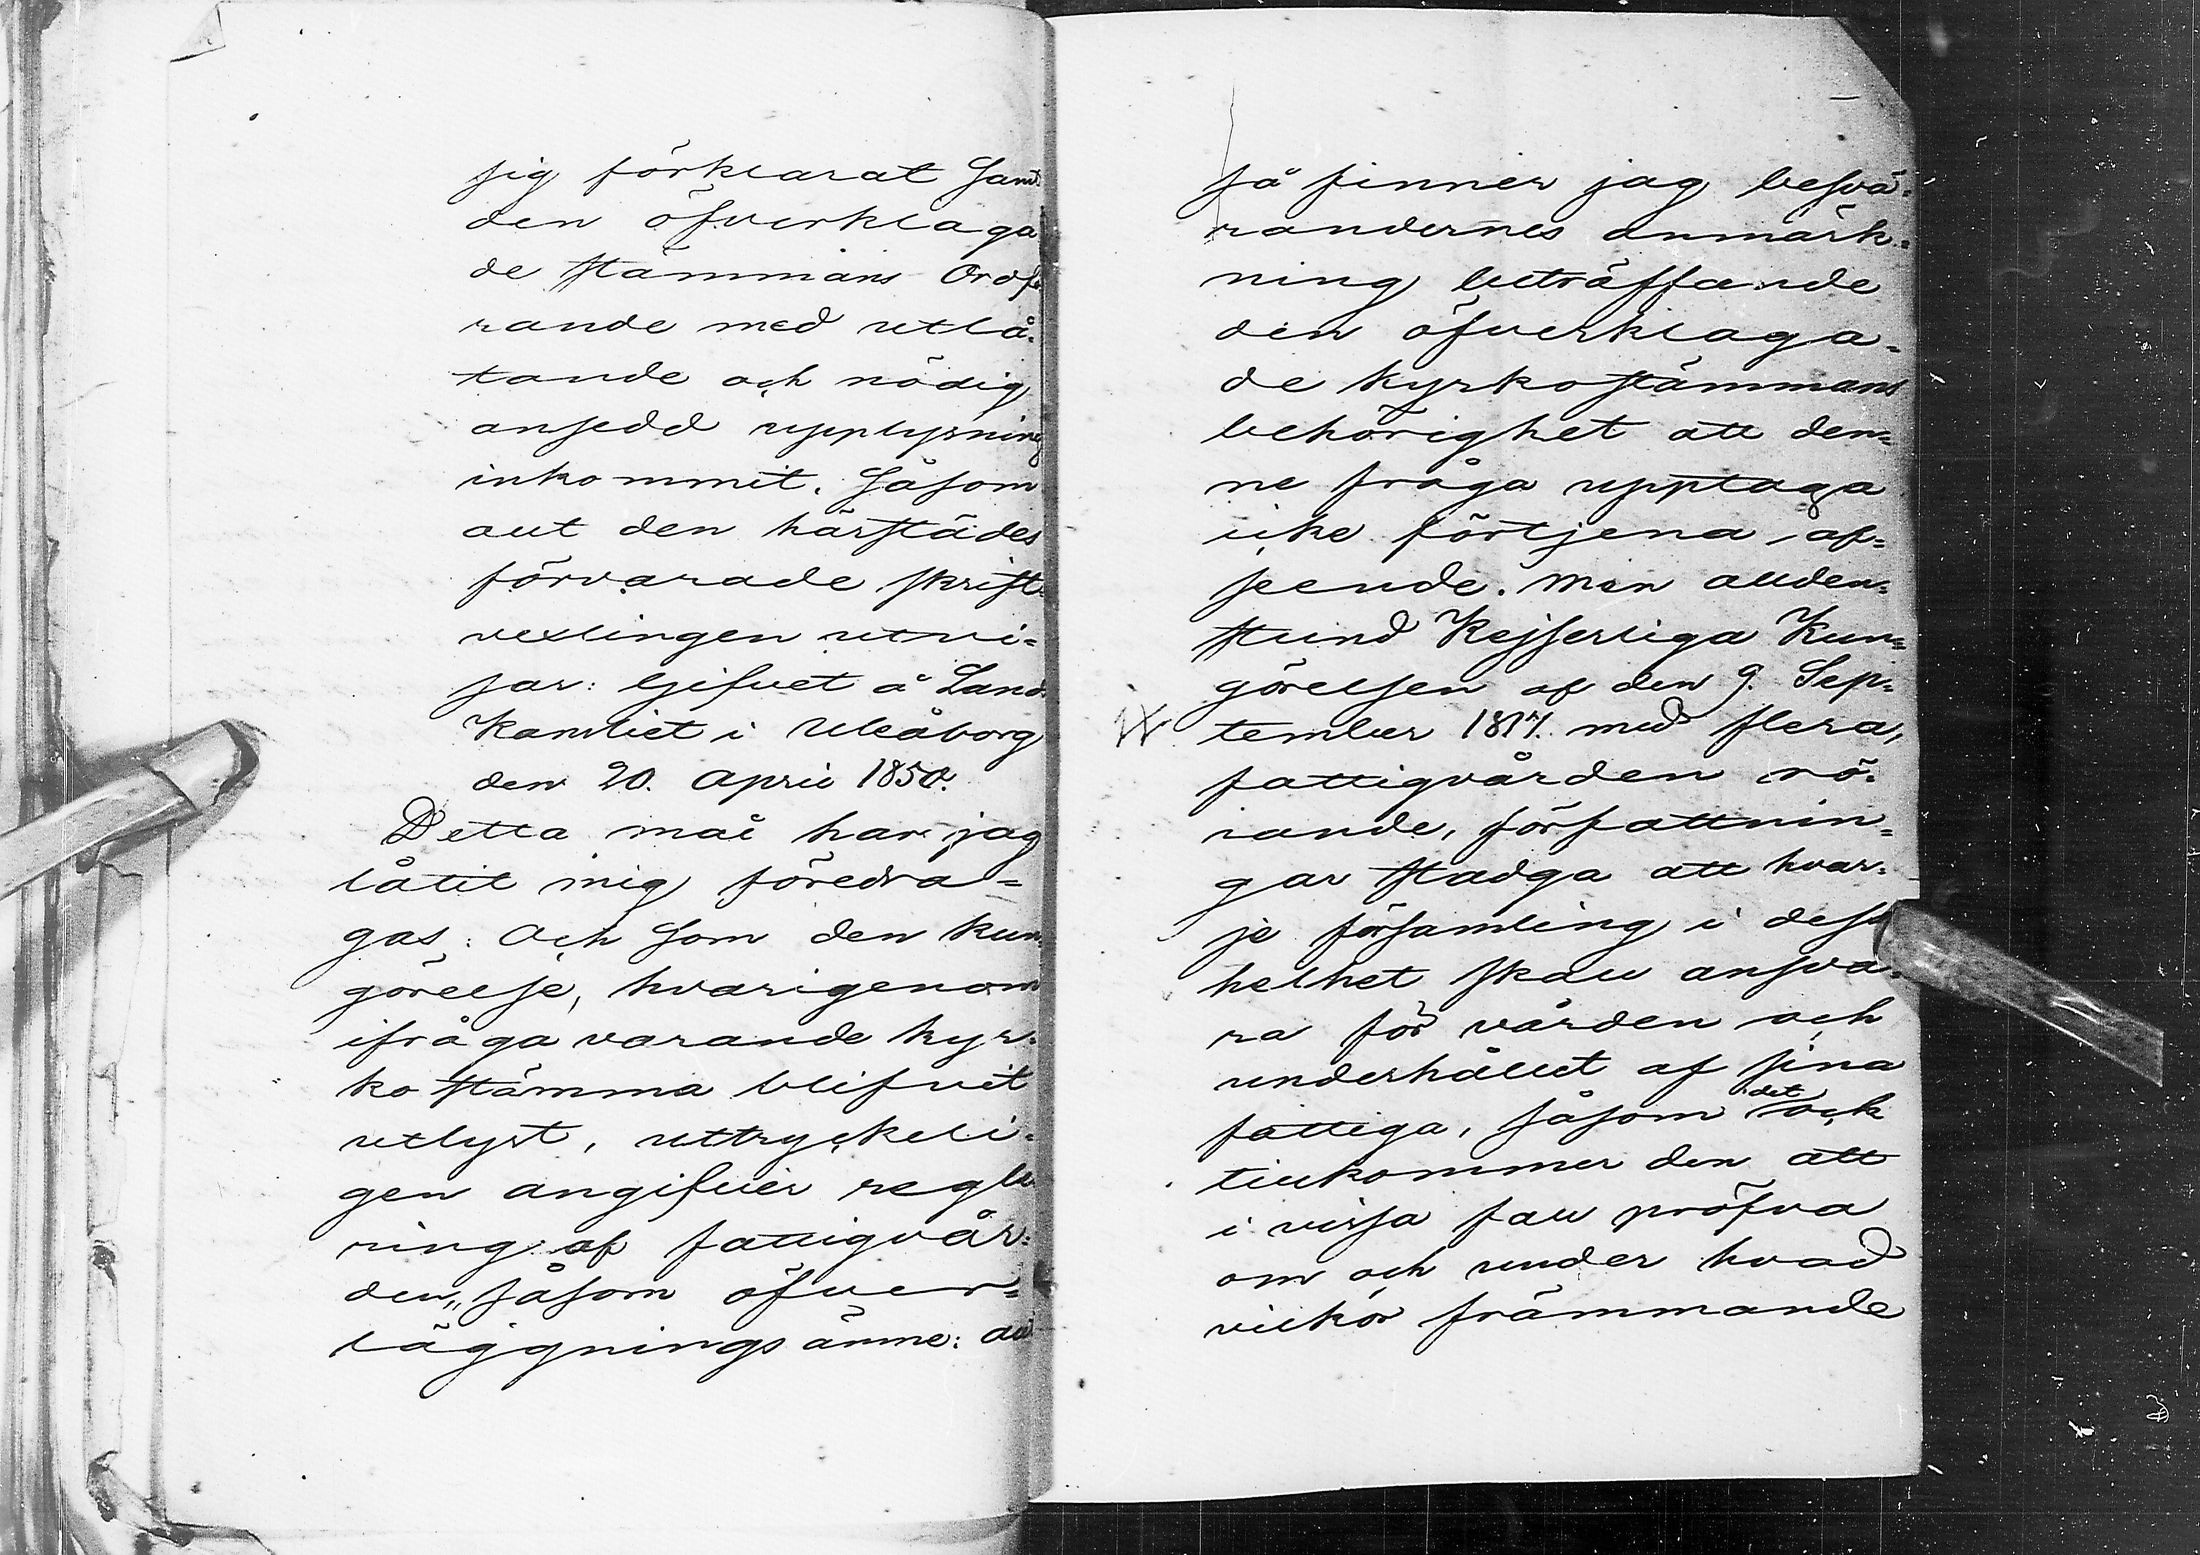 sig förklarat samt
den öfverklaga
de stämmans Ordfö
rande med utlå-
tande och nödig
ansedd upplysning
inkommit. Såsom
allt den härstädes
förvarade skrift-
vexlingen utvi-
sar: Gifvet å Lands
Kansliet i Uleåborg
den 20. April 1850.
Detta mål har jag
låtit mig föredra-
gas: Och som den kun-
görelse, hvarigenom
ifråga varande kyr-
ko stämma blifvit
utlyst, uttryckeli-
gen angifver regle
ring af fattigvår-
den„ såsom öfver-
läggnings ämne: all
Så finner jag besvä-
randernes anmärk-
ning beträffande
den öfverklaga-
de kyrkostämmans
behörighet att den-
na fråga upptaga
icke förtjena af-
seende. Men allden-
stund Kejserliga Kun-
görelsen af den 9. Sep-
tember 1817. med flera,
fattigvården rö-
rande, författnin-
gar stadga att hvar-
je församling i dess
helhet skall ansva-
ra för vården och
underhållet af sina
fattiga, såsom det ock
tillkommer den att
i vissa fall pröfva
om och under hvad
vilkor främmande